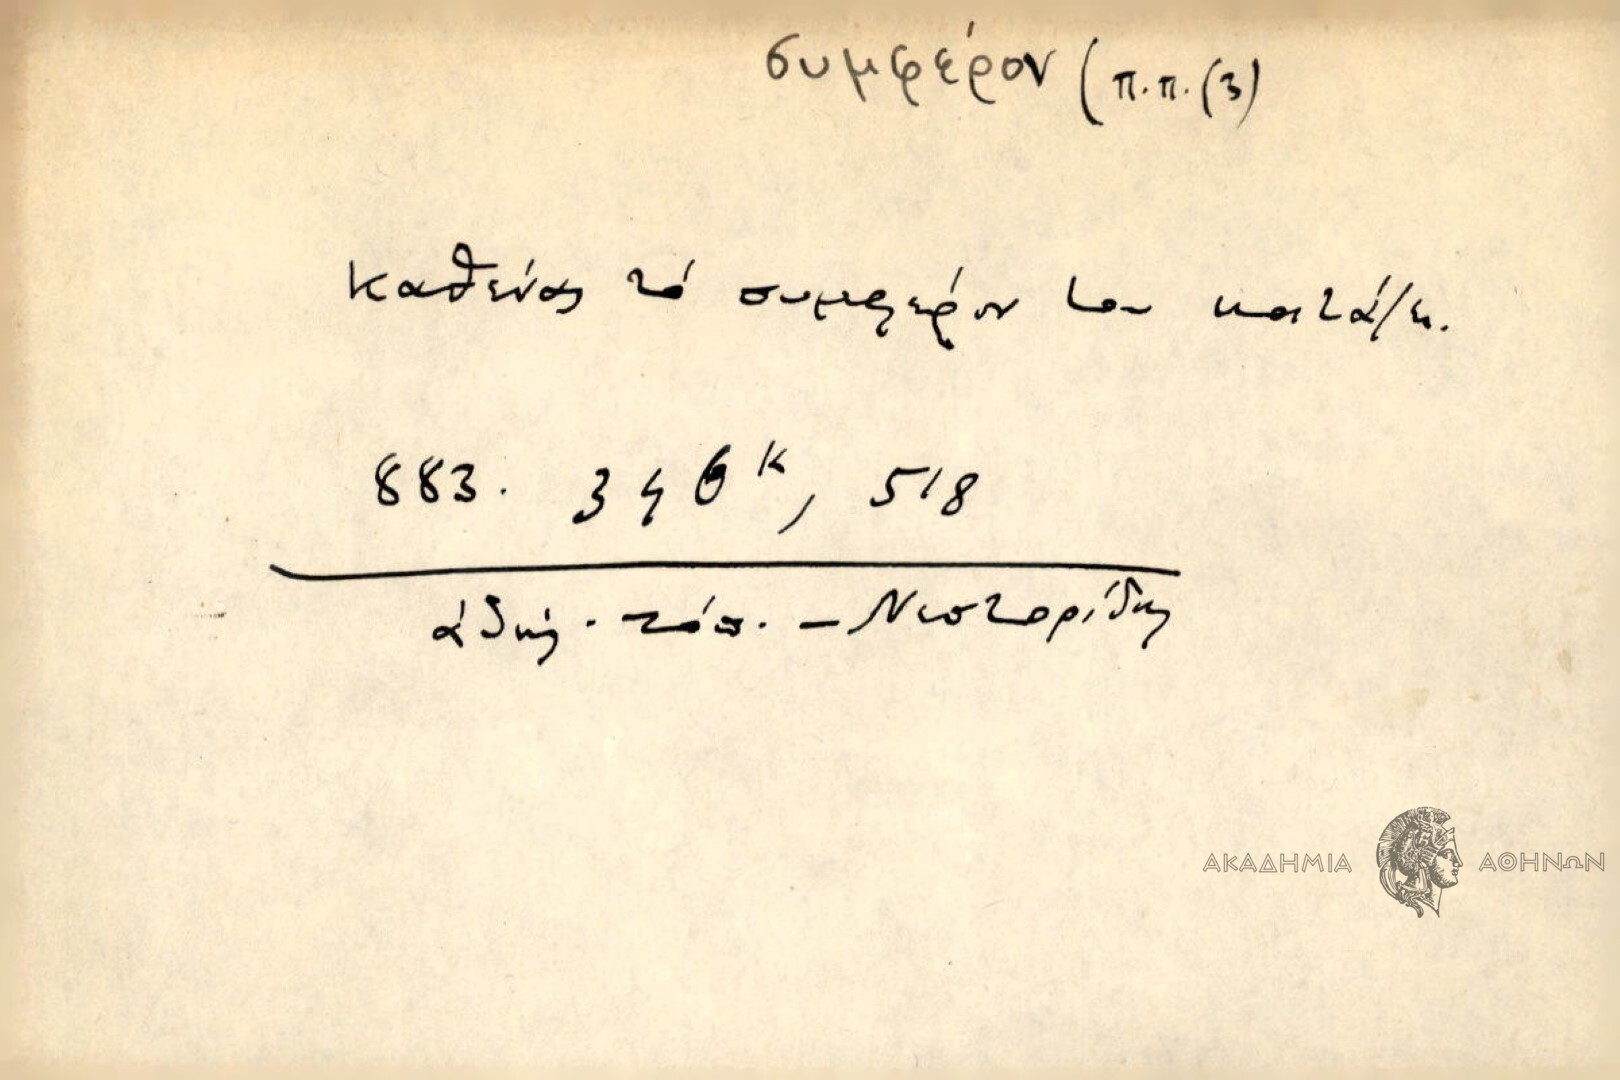 συμφέρον (π.π. (3)
καθένας τό συμφέρον του κοιτά/ει.
883. 346κ, 518
τόπ. - Νεστορίδης
ΑΚΑΔΗΜΙΑ ΑΘΗΝΩΝ